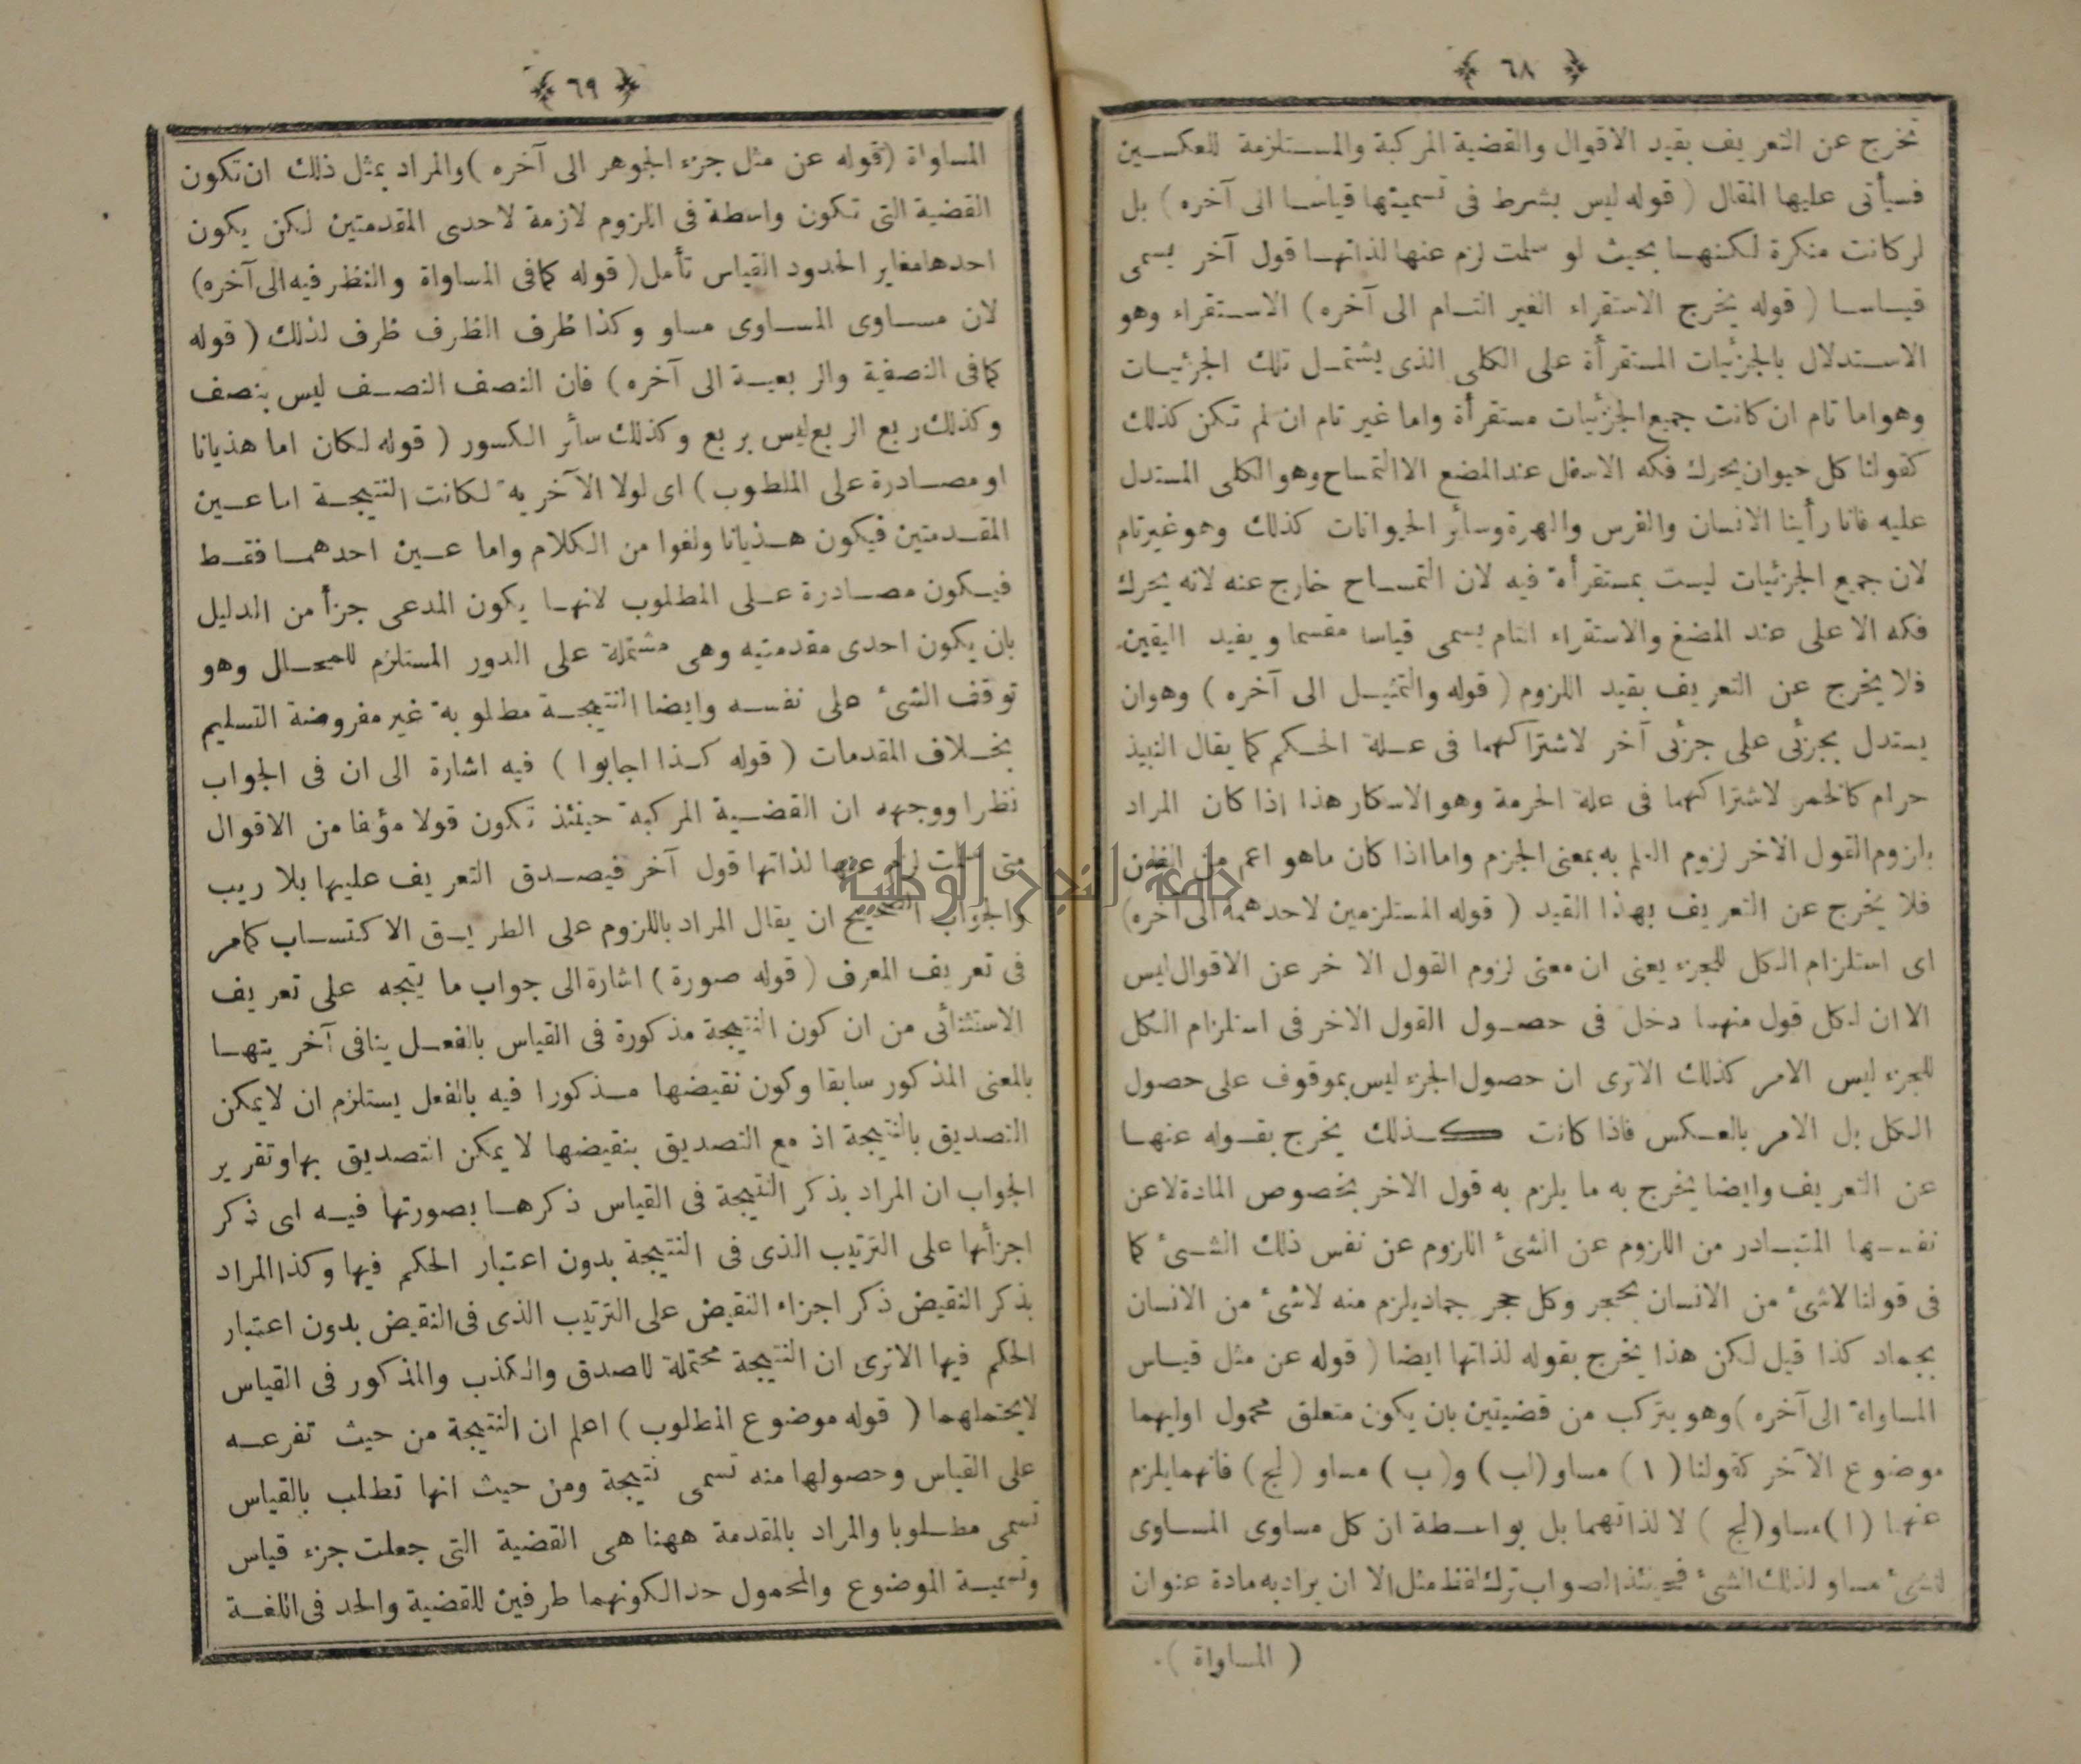 ٦٨
تخرج عن التعريف بقيد الاقوال والقضية المركبة والمستلزمة للعكسين
فسيأتى عليها المقال ( قوله ليس بشرط فى تسميتها قياسا الى آخره ) بل
لو كانت منكرة لكنها بحيث لو سلمت لزم عنها لذاتها قول آخر يسمى
قياسا ( قوله يخرج الاستقراء الغير التام الى آخره ) الاستقراء وهو
الاستدلال بالجزئيات المستقرأة على الكلى الذى يشتمل تلك الجزئيات
وهو اما تام ان كانت جميع الجزئيات مستقرأة واما غير تام ان لم تكن كذلك
كقولنا كل حيوان يحرك فكه الاسفل عند المضع الا التمساح وهو الكلى المستدل
عليه فانا رأينا الانسان والفرس والهرة وسائر الحيوانات كذلك وهو غير تام
لان جميع الجزئيات ليست بمستقرأة فيه لان التمساح خارج عنه لانه يحرك
فكه الاعلى عند المضغ والاستقراء التام يسمى قياسا مقسما ويفيد اليقين
فلا يخرج عن التعريف بقيد اللزوم ( قوله والتمثيل الى آخره ) وهو ان
يستدل بجزئى على جزئى آخر لاشتراكهما فى علة الحكم كما يقال النبيذ
حرام كالخمر لاشتراكهما فى علة الحرمة وهو الاسكار هذا اذا كان المراد
بلزوم القول الاخر لزوم العلم به بمعنى الجزم واما اذا كان ما هو اعم من الظن
فلا يخرج عن التعريف بهذا القيد ( قوله المستلزمين لاحدهما الى آخره )
اى استلزام الكل للجزء يعنى ان معنى لزوم القول الاخر عن الاقوال ليس
الا ان لكل قول منها دخل فى حصول القول الاخر فى استلزام الكل
للجزء ليس الامر كذلك الاترى ان حصول الجزء ليس بموقوف على حصول
الكل بل الامر بالعكس فاذا كانت كذلك يخرج بقوله عنها
عن التعريف وايضا يخرج به ما يلزم به قول الاخر بخصوص المادة لا عن
نفسها المتبادر من اللزوم عن الشئ اللزوم عن نفس ذلك الشئ كما
فى قولنا لاشئ من الانسان بحجر وكل حجر جماد يلزم منه لاشئ من الانسان
بجماد كذا قيل لكن هذا يخرج بقوله لذاتها ايضا ( قوله عن مثل قياس
المساواة الى آخره ) وهو يتركب من قضيتين بان يكون متعلق محمول اوليهما
موضوع الآخر كقولنا ( ا ) مساو (لب ) و(ب ) مساو (لج ) فانهما يلزم
عنها (ا) مساو (لج ) لا لذاتهما بل بواسطة ان كل مساوى المساوى
للشئ مساو لذلك الشئ فحينئذ الصواب ترك لفظ مثل الا ان يراد به مادة عنوان
( المساواة )
٦٩
المساواة (قوله عن مثل جزء الجوهر الى آخره ) والمراد بمثل ذلك ان تكون
القضية التى تكون واسطة فى اللزوم لازمة لاحدى المقدمتين لكن يكون
احدها مغاير الحدود القياس تأمل ( قوله كما فى المساواة والنظر فيه الى آخره )
لان مساوى المساوى مساو وكذا ظرف الظرف ظرف لذلك ( قوله
كما فى النصفية والربعية الى آخره ) فان النصف النصف ليس بنصف
وكذلك ربع الربع ليس بربع وكذلك سائر الكسور ( قوله لكان اما هذيانا
او مصادرة على المطلوب ) اى لولا الآخرية لكانت النتيجة اما عين
المقدمتين فيكون هذيانا ولغوا من الكلام واما عين احدهما فقط
فيكون مصادرة على المطلوب لانها يكون المدعى جزأ من الدليل
بان يكون احدى مقدمتيه وهى مشتملة على الدور المستلزم للمحال وهو
توقف الشئ على نفسه وايضا النتيجة مطلوبة غير مفروضة التسليم
بخلاف المقدمات ( قوله كذا اجابوا ) فيه اشارة الى ان فى الجواب
نظرا ووجهه ان القضية المركبة حينئذ تكون قولا مؤلفا من الاقوال
متى سلمت لزم عنها لذاتها قول آخر فيصدق التعريف عليها بلا ريب
والجواب الصحيح ان يقال المراد باللزوم على الطريق الاكتساب كما مر
فى تعريف المعرف ( قوله صورة ) اشارة الى جواب ما يتجه على تعريف
الاستثنائى من ان كون النتيجة مذكورة فى القياس بالفعل ينافى آخريتها
بالمعنى المذكور سابقا وكون نقيضها مذكورا فيه بالفعل يستلزم ان لا يمكن
التصديق بالنتيجة اذ مع التصديق بنقيضها لا يمكن التصديق بها وتقرير
الجواب ان المراد بذكر النتيجة فى القياس ذكرها بصورتها فيه اى ذكر
اجزأئها على الترتيب الذى فى النتيجة بدون اعتبار الحكم فيها وكذا المراد
بذكر النقيض ذكر اجزاء النقيض على الترتيب الذى فى النقيض بدون اعتبار
الحكم فيها الاترى ان النتيجة محتملة للصدق والكذب والمذكور فى القياس
لا يحتملهما ( قوله موضوع المطلوب ) اعلم ان النتيجة من حيث تفرعه
على القياس وحصولها منه تسمى نتيجة ومن حيث انها تطلب بالقياس
تسمى مطلوبا والمراد بالمقدمة ههنا هى القضية التى جعلت جزء قياس
وتسمية الموضوع والمحمول حدا لكونهما طرفين للقضية والحد فى اللغة
جامعة النجاح الوطنية